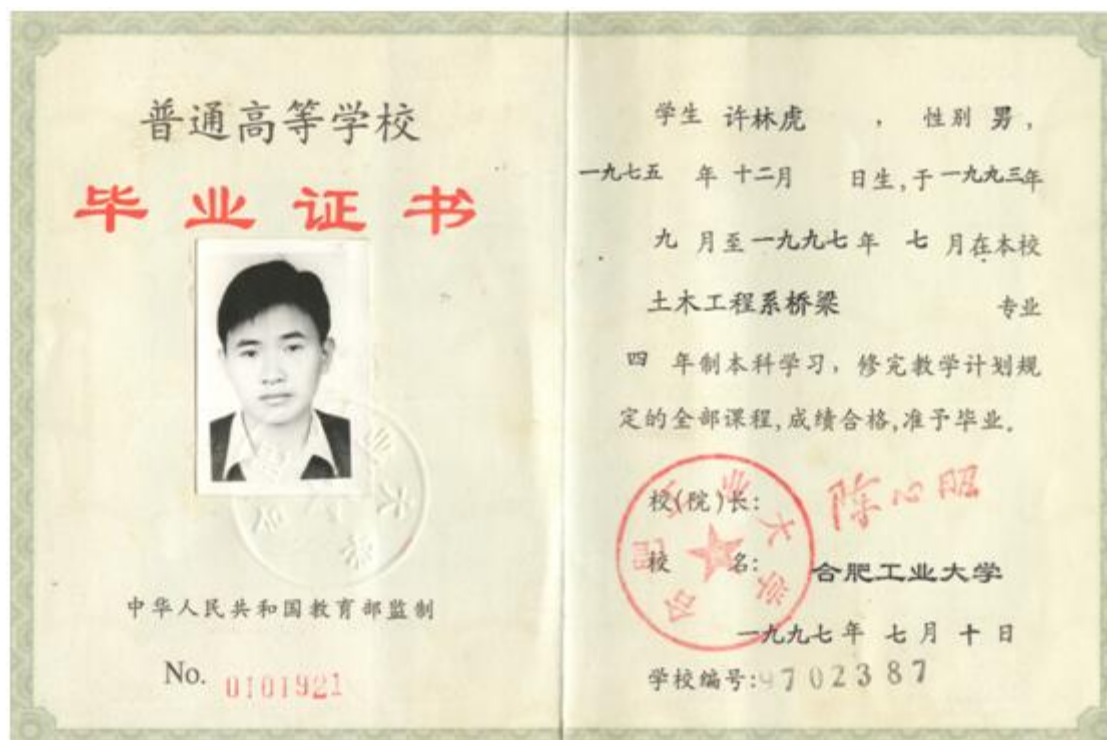 普通高等学校
毕业证书
中华人民共和国教育部监制
No. 0101921
学生 许林虎 ， 性别 男，
一九七五 年 十二月 日生，于 一九九三年
九 月至一九九七年 七 月在本校
土木工程系桥梁 专业
四 年制本科学习，修完教学计划规
定的全部课程，成绩合格，准予毕业。
校(院)长： 陈心昭
校 名： 合肥工业大学
一九九七年 七月 十日
学校编号：9702387
合肥工业大学